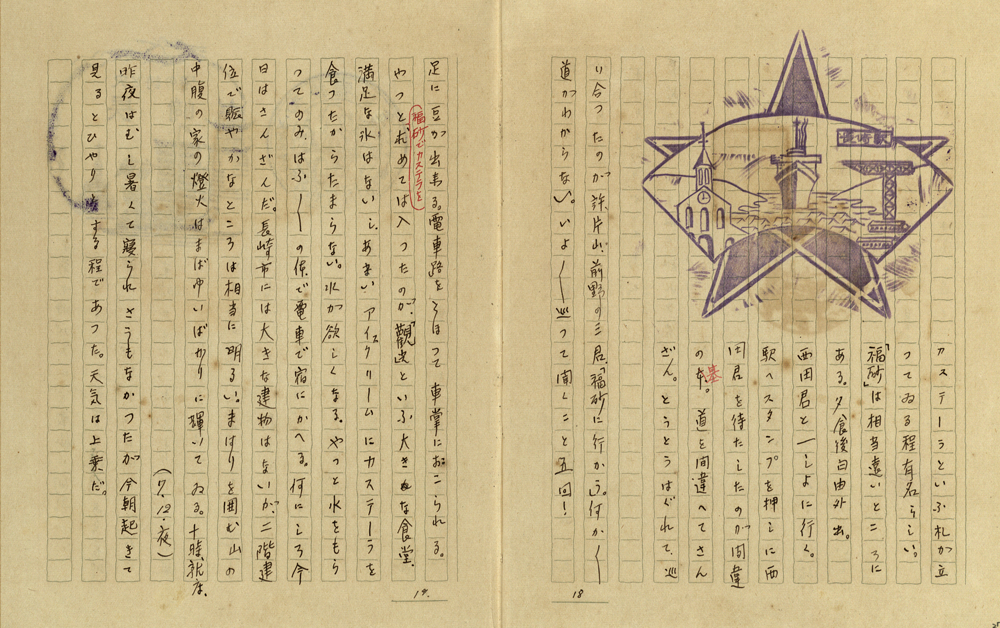 カステーラといふ札が立
つてゐる程有名らしい。
「福砂」は相当遠いところに
ある。夕食後自由外出。
西田君と一しよに行く。
駅へスタンプを押しに西
田君を待たしたのが間違
の基。道を間違へてさん
ざん。とうとうはぐれて、巡
り合つたのが許、片山、前野の三君。「福砂」に行かう。何か〳〵
道がわからない。いよ〳〵巡つて聞くこと五回!
18
足に豆が出来る。電車路をそはつて車掌におこられる。
やつと福砂でカステラを求めては入つたのが、「観光」といふ大きな食堂、
満足な氷はないし、あまいアイスクリームにカステーラを
食つたからたまらない。水が欲しくなる。やつと水をもら
つてのみ、はふ〳〵の体で電車で宿にかへる。何にしろ今
日はさんざんだ。長崎市には大きな建物はないが、二階建
位で賑やかなところは相当に明るい。まはりを囲む山の
中腹の家の燈火はまばゆいばかりに輝いてゐる。十時、就床。
(7.12.夜)
昨夜はむし暑くて寝られさうもなかつたが今朝起きて
見るとひやりとする程であつた。天気は上乗だ。
19.